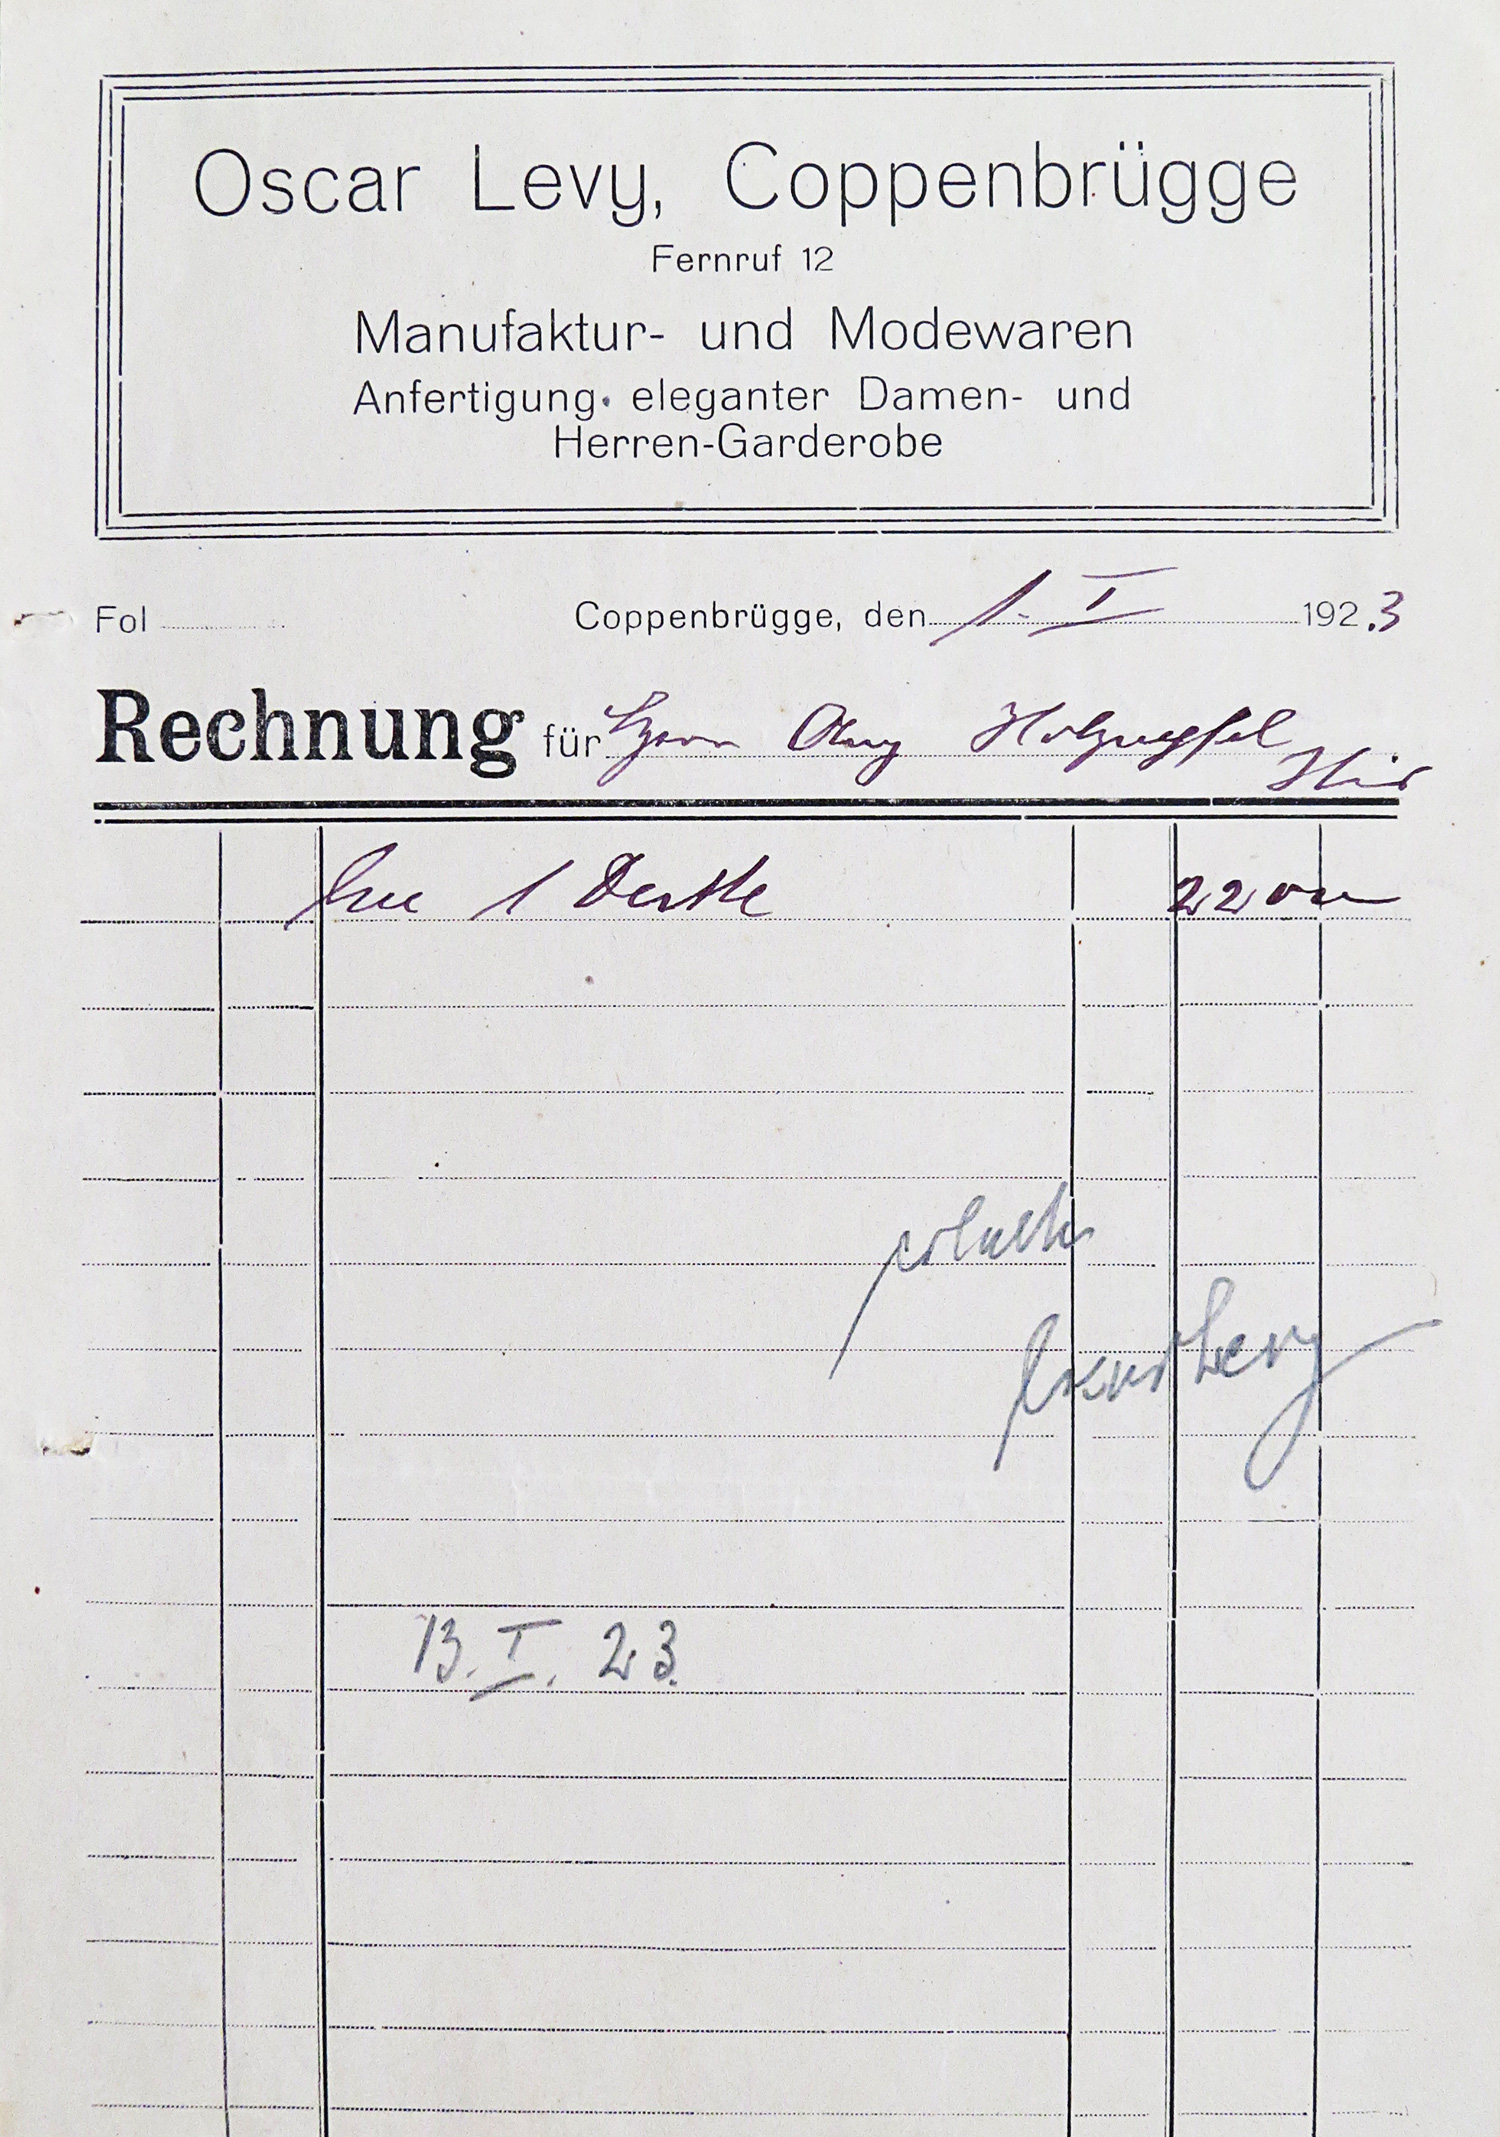 Oscar Levy, Coppenbrügge
Fernruf 12
Manufaktur- und Modewaren
Anfertigung eleganter Damen- und
Herren-Garderobe
Fol
Coppenbrügge, den 1. I 1923
Rechnung für Herrn Aug Holzapfel
Hier
1 Decke 2200
Levy
13. I. 23.